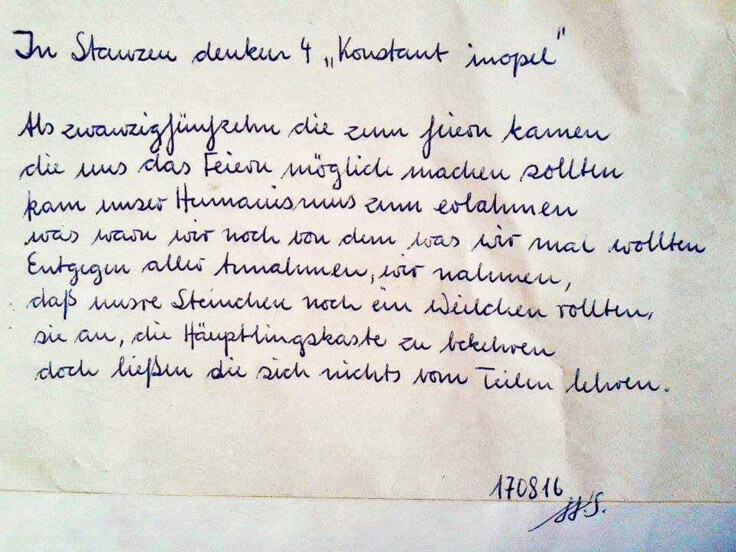 In Stanzen denken 4 „Konstant inopel“
Als zwanzigfünfzehn die zum feiern kamen
die uns das Feiern möglich machen sollten
kam unser Humanismus zum erlahmen
was warn wir noch von dem was wir mal wollten
Entgegen aller Annahmen, wir nahmen,
daß unsre Steinchen noch ein Weilchen rollten,
sie an, die Häuptlingskaste zu bekehren
doch ließen die sich nichts vom Teilen lehren.
170816